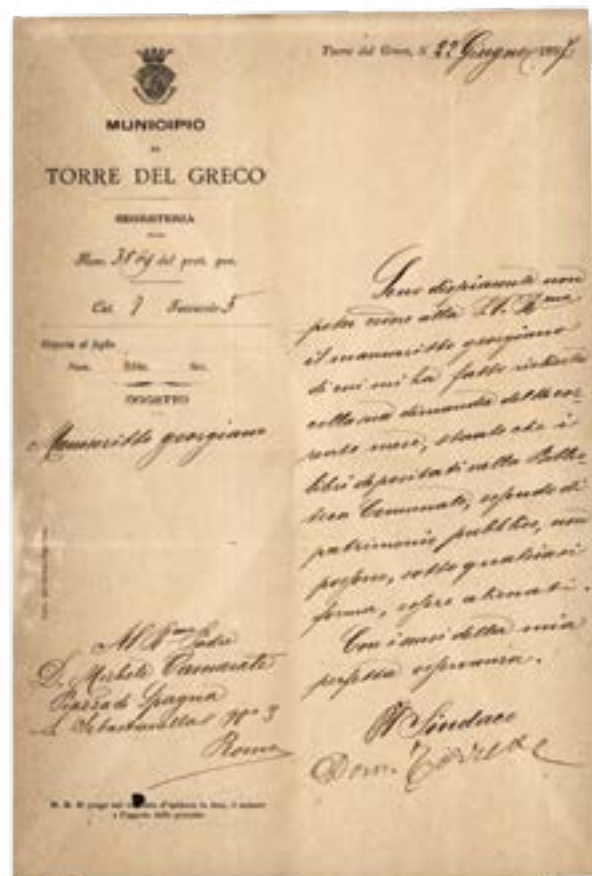 MUNICIPIO
DI
TORRE DEL GRECO
SEGRETERIA
Num. del prot. gen.
Cat. 7 Fascicolo 5
Risposta al foglio
Num. Div. Sez.
OGGETTO
Manuscritto georgiano
Al R.mo Padre
D. Michele Tamarati
Piazza di Spagna
S. Sebastianello 3
Roma
N. B. Si prega nel d'indicare la data, il numero
e l'oggetto della presente
Torre del Greco, li 22 Giugno
Sono dispiacente non
poter cedere alla S.V. R.ma
il manuscritto georgiano
di cui mi ha fatto richiesta
colla sua dimanda del 16 cor-
rente mese, stante che i
libri depositati nella Biblio-
teca Comunale, essendo di
patrimonio pubblico, non
possono, sotto qualsiasi
forma, essere alienati.
Con i sensi della mia
perfetta osservanza.
Il Sindaco
Dom.